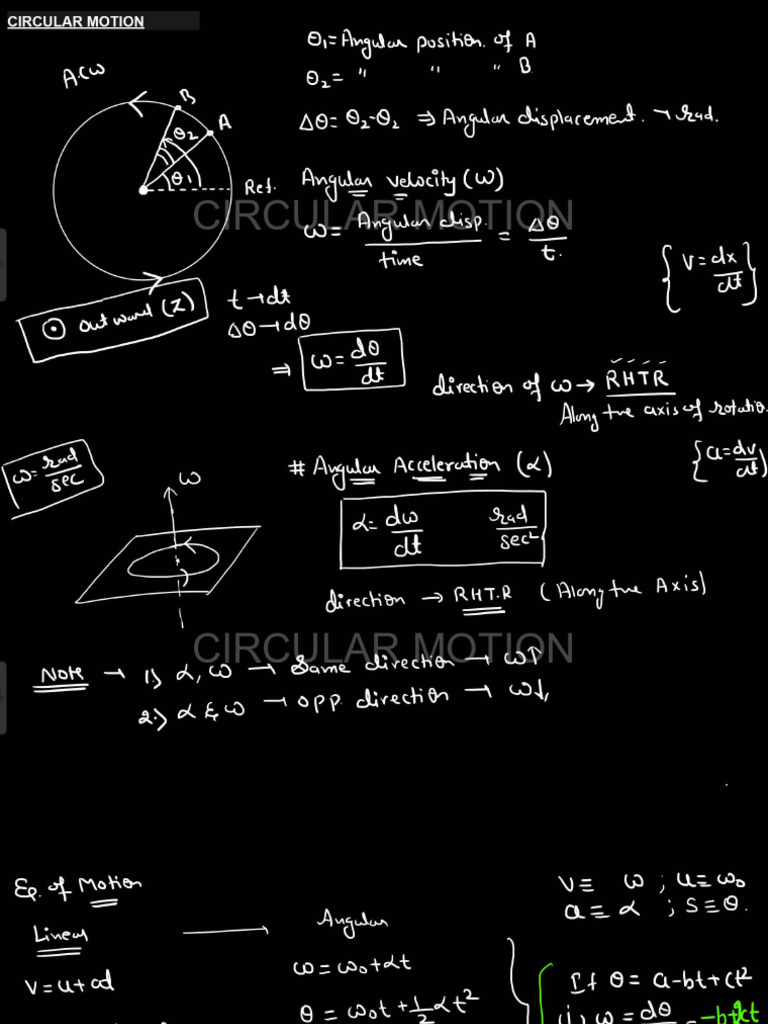 CIRCULAR MOTION
θ₁ = Angular position of A
θ₂ = " " " B
A.C.W
B
A
θ₂
θ₁
Ref.
Δθ = θ₂-θ₂ ⇒ Angular displacement → rad.
Angular velocity (ω)
CIRCULAR MOTION
ω = Angular disp. / time = Δθ / t.
{ v = dx/dt }
⊙ outward (Z)
t → dt
Δθ → dθ
⇒ ω = dθ/dt
direction of ω → RHTR
Along the axis of rotatio
ω = rad/sec
ω
# Angular Acceleration (α)
{ a = dv/dt }
α = dω/dt rad/sec²
direction → RHT.R (Along the Axis)
CIRCULAR MOTION
Note → 1) α, ω → Same direction → ω↑
2.) α & ω → opp. direction → ω↓
Eq. of Motion
Linear → Angular
v ≡ ω ; u ≡ ω₀
a ≡ α ; S ≡ θ.
v = u + at
ω = ω₀ + αt
θ = ω₀t + 1/2 αt²
If θ = a-bt+ct²
(i) ω = dθ